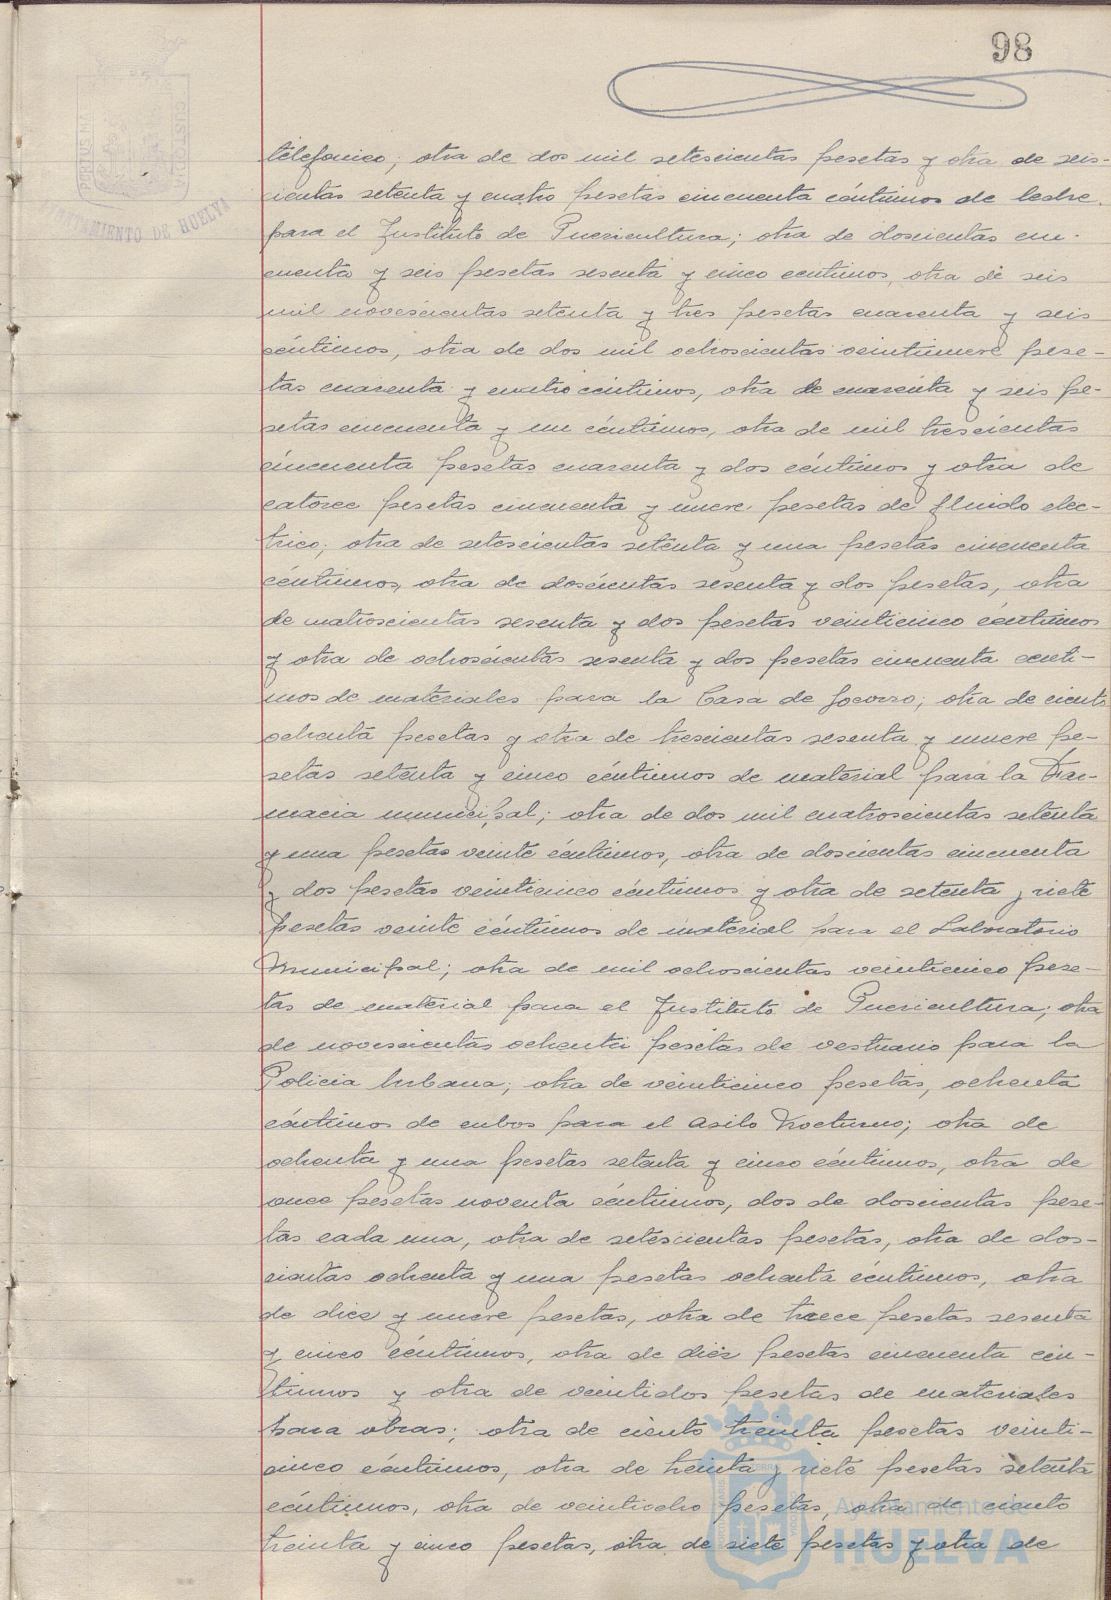 98
telefonico; otra de dos mil setescientas pesetas y otra de seis-
cientas setenta y cuatro pesetas cincuenta céntimos de leche
para el Instituto de Puericultura; otra de doscientas cin-
cuenta y seis pesetas sesenta y cinco centimos, otra de seis
mil novescientas setenta y tres pesetas cuarenta y seis
céntimos, otra de dos mil ochoscientas veintinueve pese-
tas cuarenta y cuatro céntimos, otra de cuarenta y seis pe-
setas cincuenta y un céntimos, otra de mil trescientas
cincuenta pesetas cuarenta y dos céntimos y otra de
catorce pesetas cincuenta y nueve pesetas de fluido elec-
trico; otra de setescientas setenta y una pesetas cincuenta
céntimos, otra de doscientas sesenta y dos pesetas, otra
de cuatroscientas sesenta y dos pesetas veinticinco céntimos
y otra de ochoscientas sesenta y dos pesetas cincuenta centi-
mos de materiales para la Casa de Socorro; otra de ciento
ochenta pesetas y otra de trescientas sesenta y nueve pe-
setas setenta y cinco céntimos de material para la Far-
macia municipal; otra de dos mil cuatroscientas setenta
y una pesetas veinte céntimos, otra de doscientas cincuenta
y dos pesetas veinticinco céntimos y otra de setenta y siete
pesetas veinte céntimos de material para el Laboratorio
Municipal; otra de mil ochoscientas veinticinco pese-
tas de material para el Instituto de Puericultura; otra
de novescientas ochenta pesetas de vestuario para la
Policia Urbana; otra de veinticinco pesetas, ochenta
céntimos de cubos para el Asilo Nocturno; otra de
ochenta y una pesetas setenta y cinco céntimos, otra de
once pesetas noventa céntimos, dos de doscientas pese-
tas cada una, otra de setescientas pesetas, otra de dos-
cientas ochenta y una pesetas ochenta céntimos, otra
de diez y nueve pesetas, otra de trece pesetas sesenta
y cinco céntimos, otra de diez pesetas cincuenta cén-
timos y otra de veintidos pesetas de materiales
para obras; otra de ciento treinta pesetas veinti-
cinco céntimos, otra de treinta y siete pesetas setenta
céntimos, otra de veintiocho pesetas, otra de ciento
treinta y cinco pesetas, otra de siete pesetas y otra de
AYUNTAMIENTO DE HUELVA
Ayuntamiento de
HUELVA